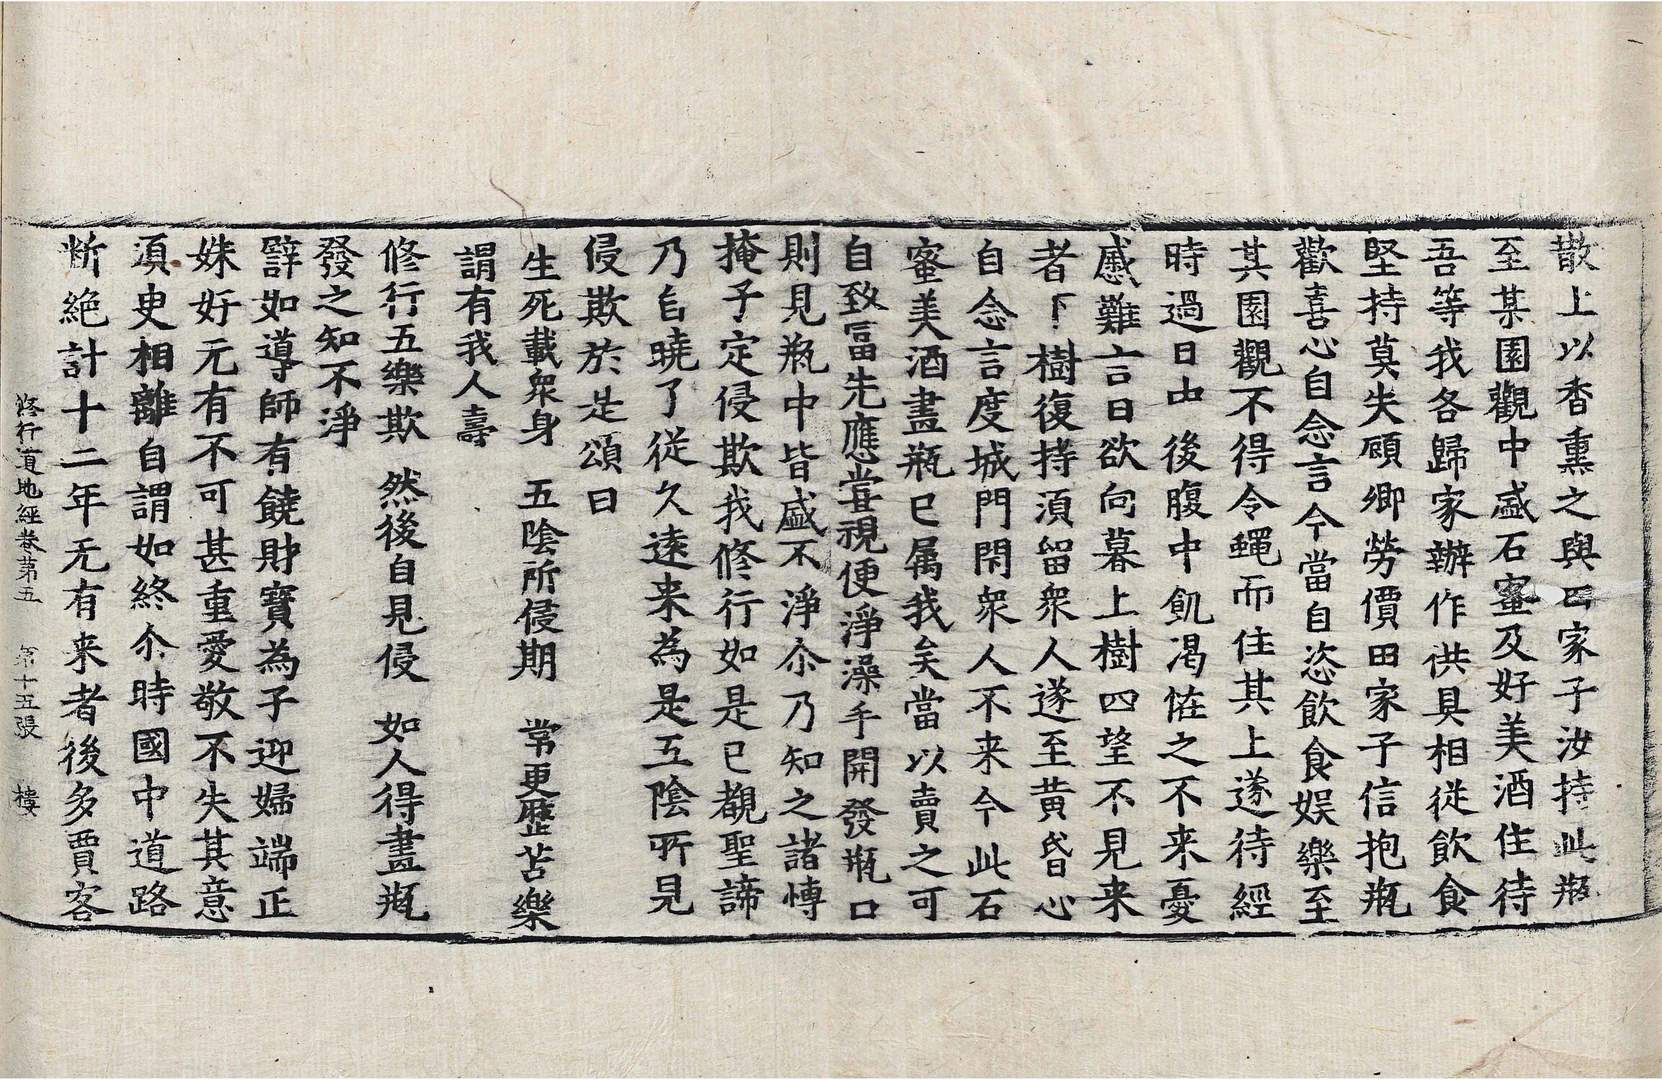 散上以香熏之與田家子汝持此瓶
至某園觀中盛石蜜及好美酒住待
吾等我各歸家辦作供具相從飲食
堅持莫失顧卿勞價田家子信抱瓶
歡喜心自念言今當自恣飲食娛樂至
其園觀不得令蠅而住其上遂待經
時過日中後腹中飢渴恠之不来憂
慼難言日欲向暮上樹四望不見来
者下樹復持湏留衆人遂至黃昏心
自念言度城門閇衆人不来今此石
蜜美酒盡瓶已属我矣當以賣之可
自致冨先應嘗視便淨澡手開發瓶口
則見瓶中皆盛不淨尒乃知之諸愽
掩子定侵欺我修行如是已覩聖諦
乃自曉了從久遠来為是五陰所見
侵欺於是頌曰
生死載衆身 五陰所侵期 常更歷苦樂
謂有我人壽
修行五樂欺 然後自見侵 如人得畫瓶
發之知不淨
譬如導師有饒財寶為子迎婦端正
姝好无有不可甚重愛敬不失其意
湏臾相離自謂如終尒時國中道路
斷絶計十二年无有来者後多賈客
修行道地經卷第五 第十五張 樓